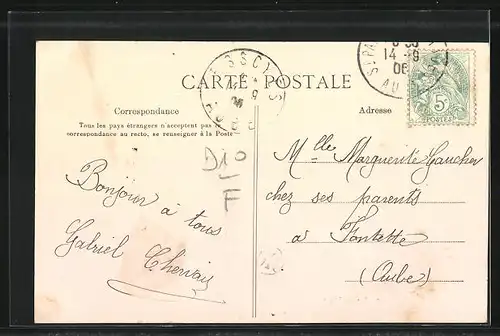 CARTE POSTALE
Correspondance
Tous les pays étrangers n'acceptent pas
correspondance au recto, se renseigner à la Poste
Bonjour à tous
Gabriel
D10
F
Adresse
Mlle Marguerite Gaucher
chez ses parents
à Fontette
(Aube)
14 -9
06
5c
POSTES